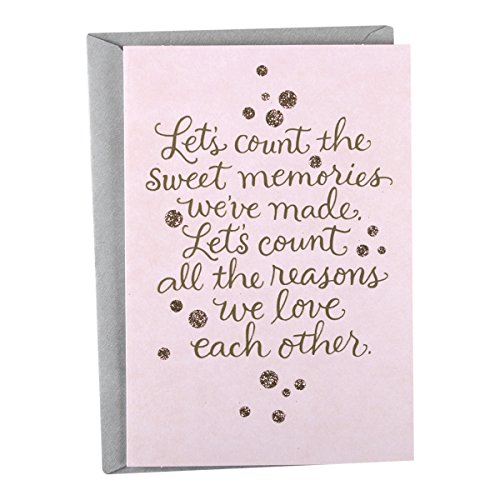 Let's count the
sweet memories
we've made.
Let's count
all the reasons
we love
each other.